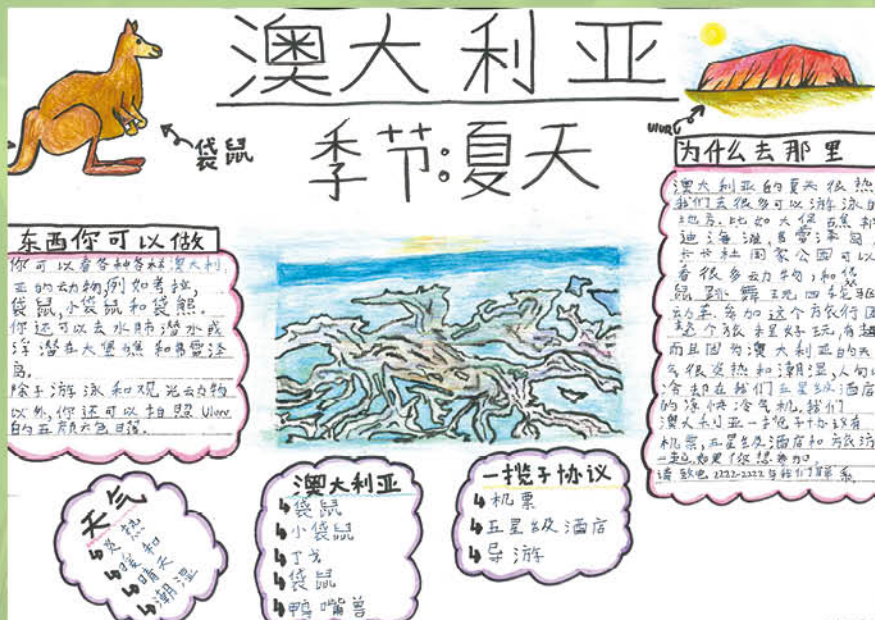 澳大利亚
季节:夏天
袋鼠
uluru
东西你可以做
你可以看各种各样澳大利
亚的动物,例如考拉,
袋鼠,小袋鼠和袋熊.
你还可以去水肺潜水或
浮潜在大堡礁和弗雷泽
岛.
除了游泳和观光动物
以外,你还可以拍照 Uluru
的五颜六色日落.
为什么去那里
澳大利亚的夏天很热
我们去很多可以游泳的
地方.比如大堡礁,邦
迪海滩,弗雷泽岛.
卡卡杜国家公园可以
看很多动物,和袋
鼠跳舞玩四轮驱
动车.参加这个旅行团
这个旅程好玩,有趣
而且因为澳大利亚的天
气很炎热和潮湿,人可以
冷却在我们五星级酒店
的凉快冷气机.我们
澳大利亚一揽子协议有
机票,五星级酒店和旅游
一起.如果你想参加,
请致电2222-2222与我们联系.
天气
炎热
暖和
晴天
潮湿
澳大利亚
袋鼠
小袋鼠
丁戈
袋鼠
鸭嘴兽
一揽子协议
机票
五星级酒店
导游